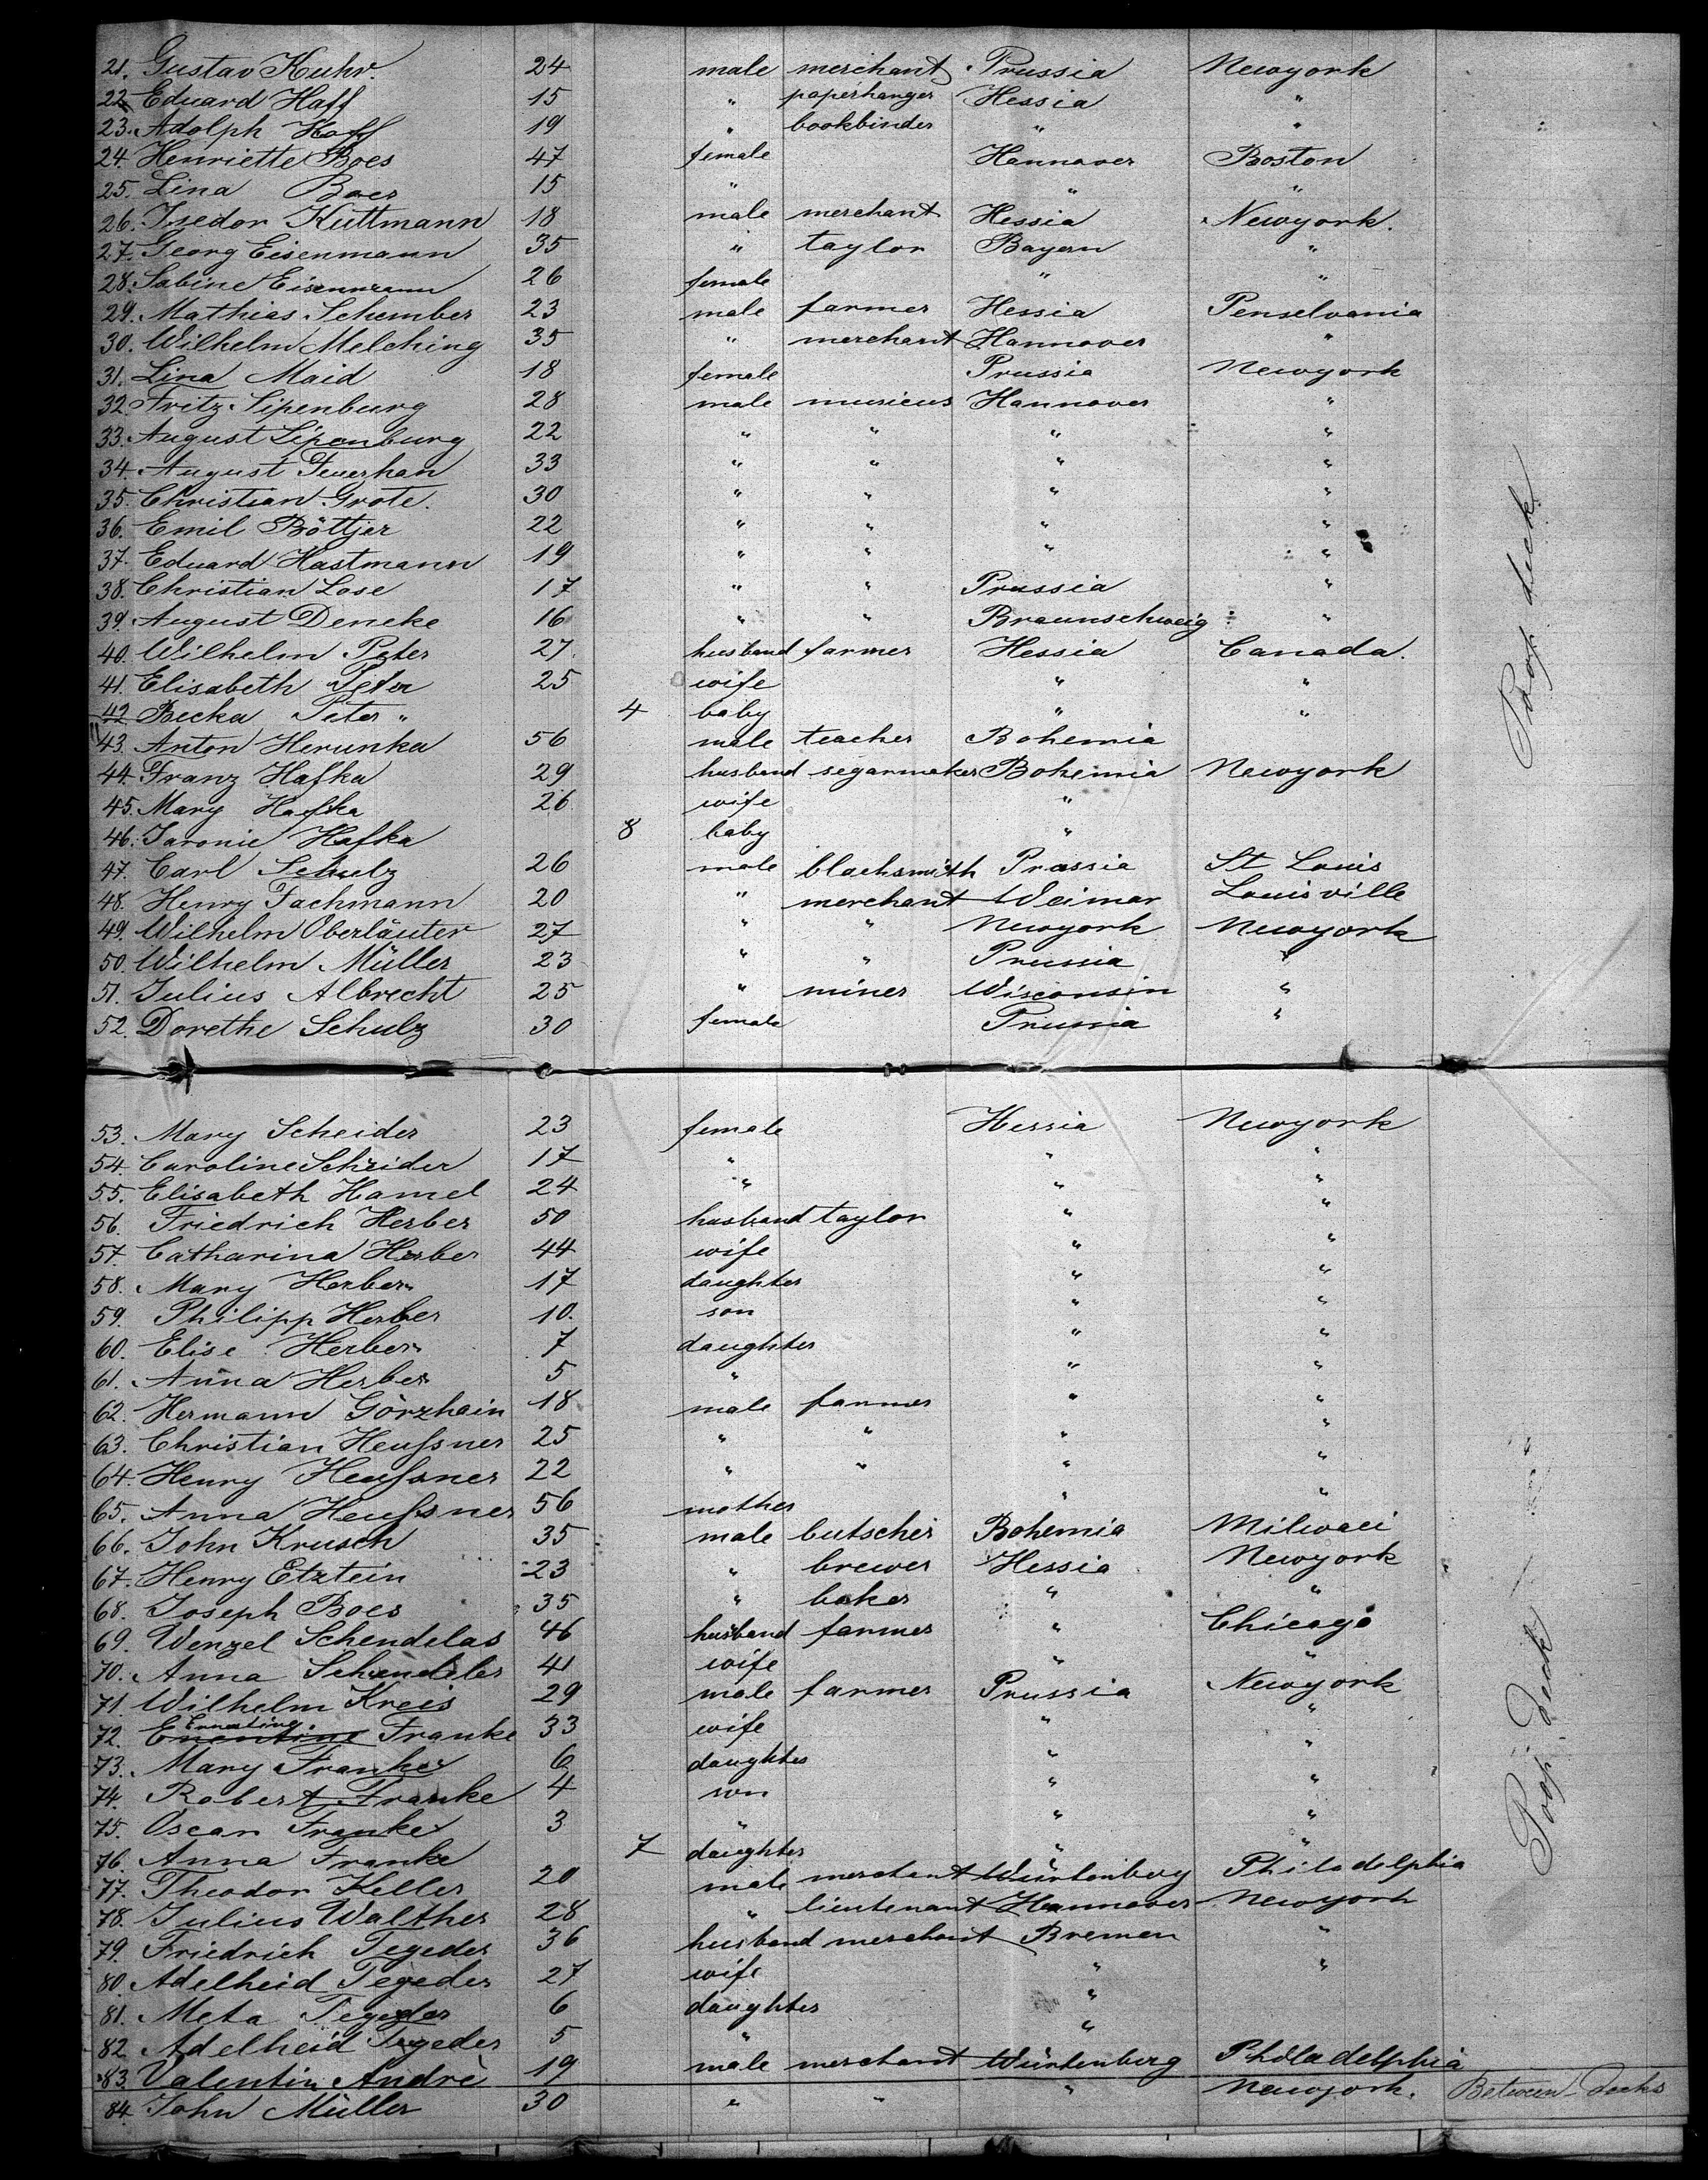 21. Gustav Kuhr. 24 male merchant Prussia Newyork
22 Eduard Haff 15 " paperhanger Hessia "
23. Adolph Haff 19 " bookbinder " "
24. Henriette Boes 47 female Hannover Boston
25. Lina Boes 15 " " "
26. Isedor Kuttmann 18 male merchant Hessia Newyork.
27. Georg Eisenmann 35 " taylor Bayern "
28. Sabine Eisenmann 26 female " "
29. Mathias Schember 23 male farmer Hessia Penselvania
30. Wilhelm Melching 35 " merchant Hannover "
31. Lina Maid 18 female Prussia Newyork
32 Fritz Sipenburg 28 male musicus Hannover "
33. August Sipenburg 22 " " " "
34. August Feuerhan 33 " " " "
35. Christian Grote. 30 " " " "
36. Emil Böttjer 22 " " " "
37. Eduard Hastmann 19 " " " "
38. Christian Lose 17 " " Prussia "
39. August Deneke 16 " " Braunschweig "
40. Wilhelm Peter 27. husband farmer Hessia Canada.
41. Elisabeth Peter 25 wife " "
42 Becka Peter " 4 baby " "
43. Anton Herunka 56 male teacher Bohemia
44. Franz Hafka 29 husband segarmaker Bohemia Newyork
45. Mary Hafka 26 wife "
46. Jaronie Hafka 8 baby "
47. Carl Schulz 26 male blachsmith Prussia St Louis
48. Henry Fachmann 20 " merchant Weimar Louisville
49. Wilhelm Oberläuter 27 " " Newyork Newyork
50. Wilhelm Müller 23 " " Prussia "
51. Julius Albrecht 25 " miner Wisconsin "
52. Dorethe Schulz 30 female Prussia "
Poop deck
53. Mary Scheider 23 female Hessia Newyork
54. Caroline Scheider 17 " " "
55. Elisabeth Hamel 24 " " "
56. Friedrich Herber 50 husband taylor " "
57. Catharina Herber 44 wife " "
58. Mary Herber 17 daughter " "
59. Philipp Herber 10. son " "
60. Elise Herber 7 daughter " "
61. Anna Herber 5 " " "
62. Hermann Görzhain 18 male farmer " "
63. Christian Heußner 25 " " " "
64. Henry Heußner 22 " " " "
65. Anna Heußner 56 mother " "
66. John Krusch 35 male butscher Bohemia Milwaci
67. Henry Etztein 23 " brewer Hessia Newyork
68. Joseph Boes 35 " baker " "
69. Wenzel Schendelas 46 husband farmer " Chicago
70. Anna Schendeler 41 wife " "
71. Wilhelm Kreis 29 male farmer Prussia Newyork
72. Ernestine Franke 33 wife " "
73. Mary Franke 6 daughter " "
74. Robert Franke 4 son " "
75. Oscar Franke 3 " " "
76. Anna Franke 7 daughter " "
77. Theodor Keller 20 male merchant Würtenberg Philadelphia
78. Julius Walther 28 " lieutenant Hannover Newyork
79. Friedrich Tegeder 36 husband merchant Bremen "
80. Adelheid Tegeder 27 wife " "
81. Meta Tegeder 6 daughter "
82 Adelheid Tegeder 5 " "
83. Valentin Andrè 19 male merchant Würtenberg Philadelphia
Poop deck
84. John Müller 30 " " " Newyork. Between decks